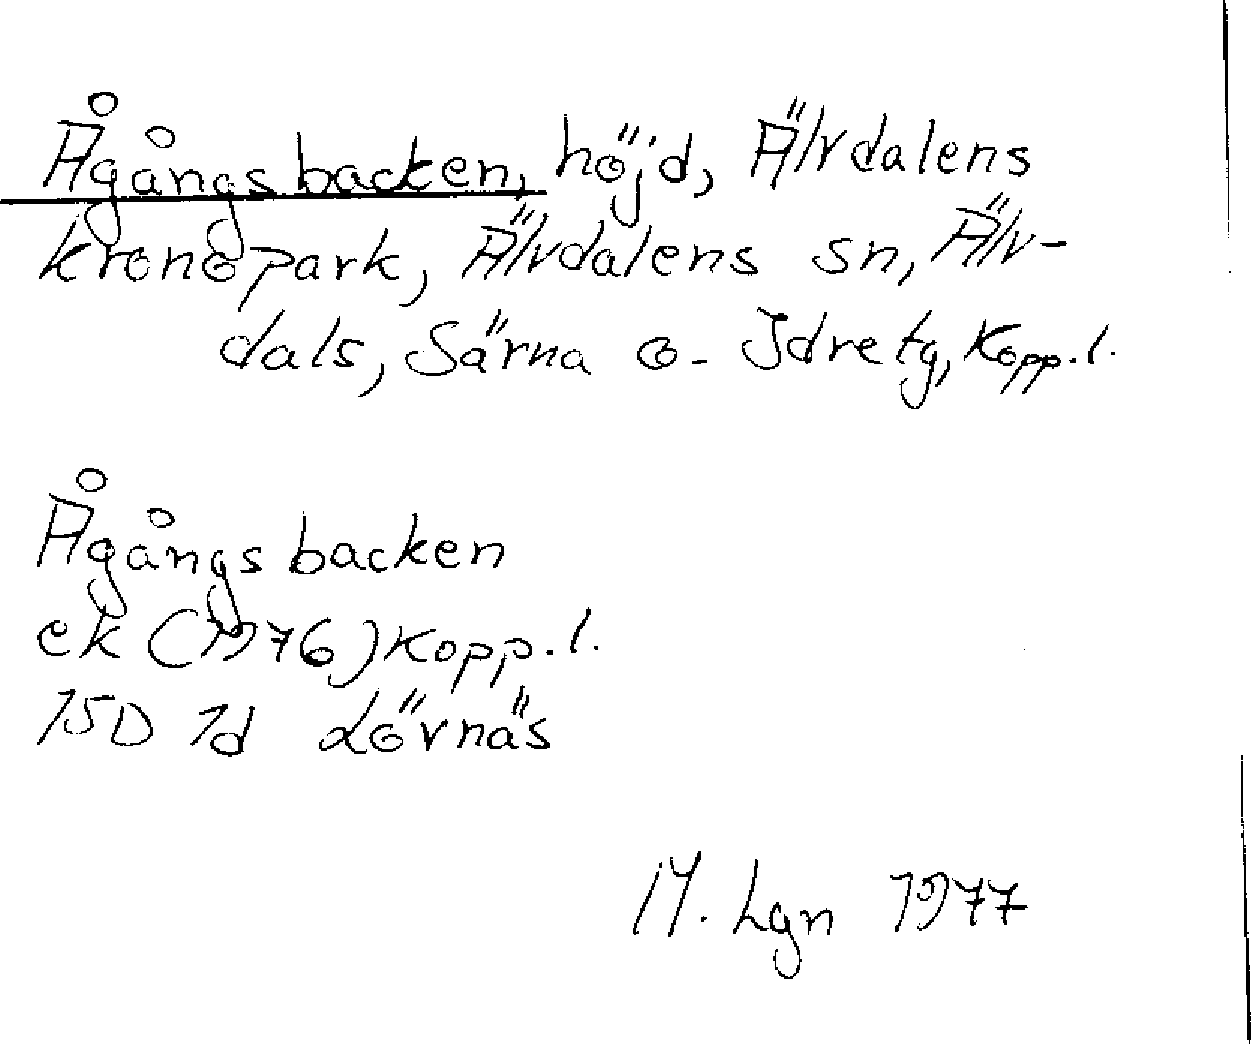 Ågångsbacken, höjd, Älvdalens
kronopark, Älvdalens sn, Älv-
dals, Särna o. Idre tg, Kopp. l.
Ågångsbacken
ek (1976) Kopp. l.
15D 1d Lövnäs
M. Lgn 1977